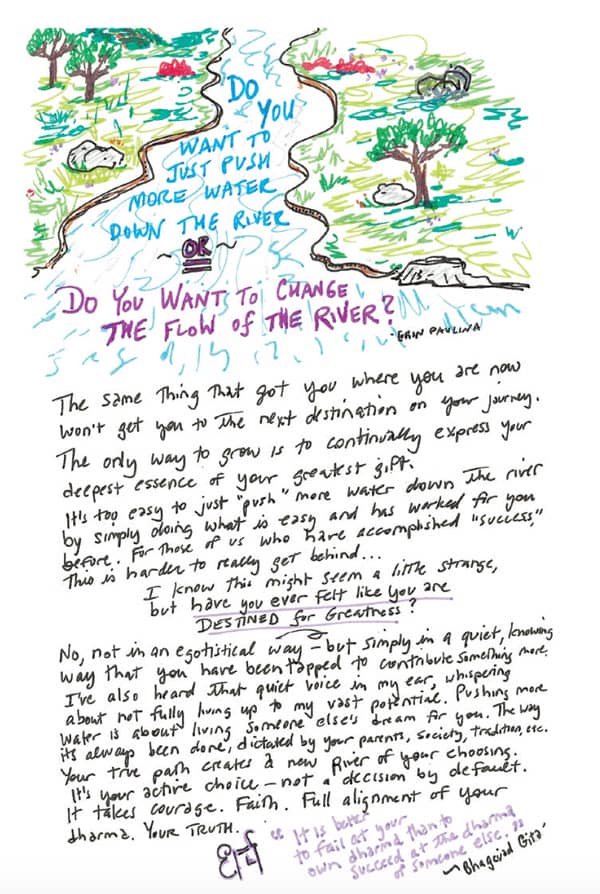 DO
YOU
WANT TO
JUST PUSH
MORE WATER
DOWN THE RIVER
~ OR ~
DO YOU WANT TO CHANGE
THE FLOW of THE RIVER?
-ERIN PAULINA
The same Thing that got you where you are now
won't get you to the next destination on your journey.
The only way to grow is to continually express your
deepest essence of your greatest gift.
It's too easy to just "push" more water down the river
by simply doing what is easy and has worked for you
before. For those of us who have accomplished "success,"
This is harder to really get behind...
I know this might seem a little strange,
but have you ever felt like you are
DESTINED for Greatness?
No, not in an egotistical way - but simply in a quiet, knowing
way that you have been tapped to contribute something more.
I've also heard that quiet voice in my ear, whispering
about not fully living up to my vast potential. Pushing more
water is about living someone else's dream for you. The way
its always been done, dictated by your parents, society, tradition, etc.
Your true path creates a new River of your choosing.
It's your active choice - not a decision by default.
It takes courage. Faith. Full alignment of your
dharma. YOUR TRUTH.
धर्म
"It is better
to fail at your
own dharma than to
succeed at the dharma
of someone else."
~ Bhagavad Gita